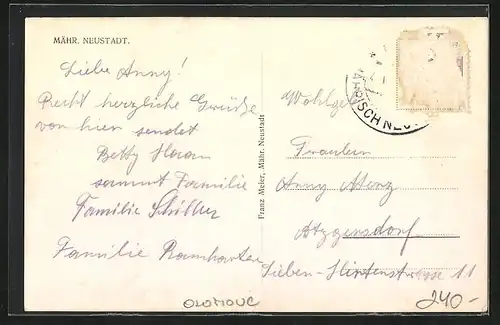 MÄHR. NEUSTADT.
Liebe Anny!
Recht herzliche Grüße
von hier sendet
Betty Haan
sammt Familie
Familie Schiller
Familie
Franz Meier, Mähr. Neustadt
MÄHRISCH NEU
Wohlgeb
Fräulein
Anny Menz
Atzgersdorf
Sieben-Hirtenstrasse 11
OLOMOUC
240.-